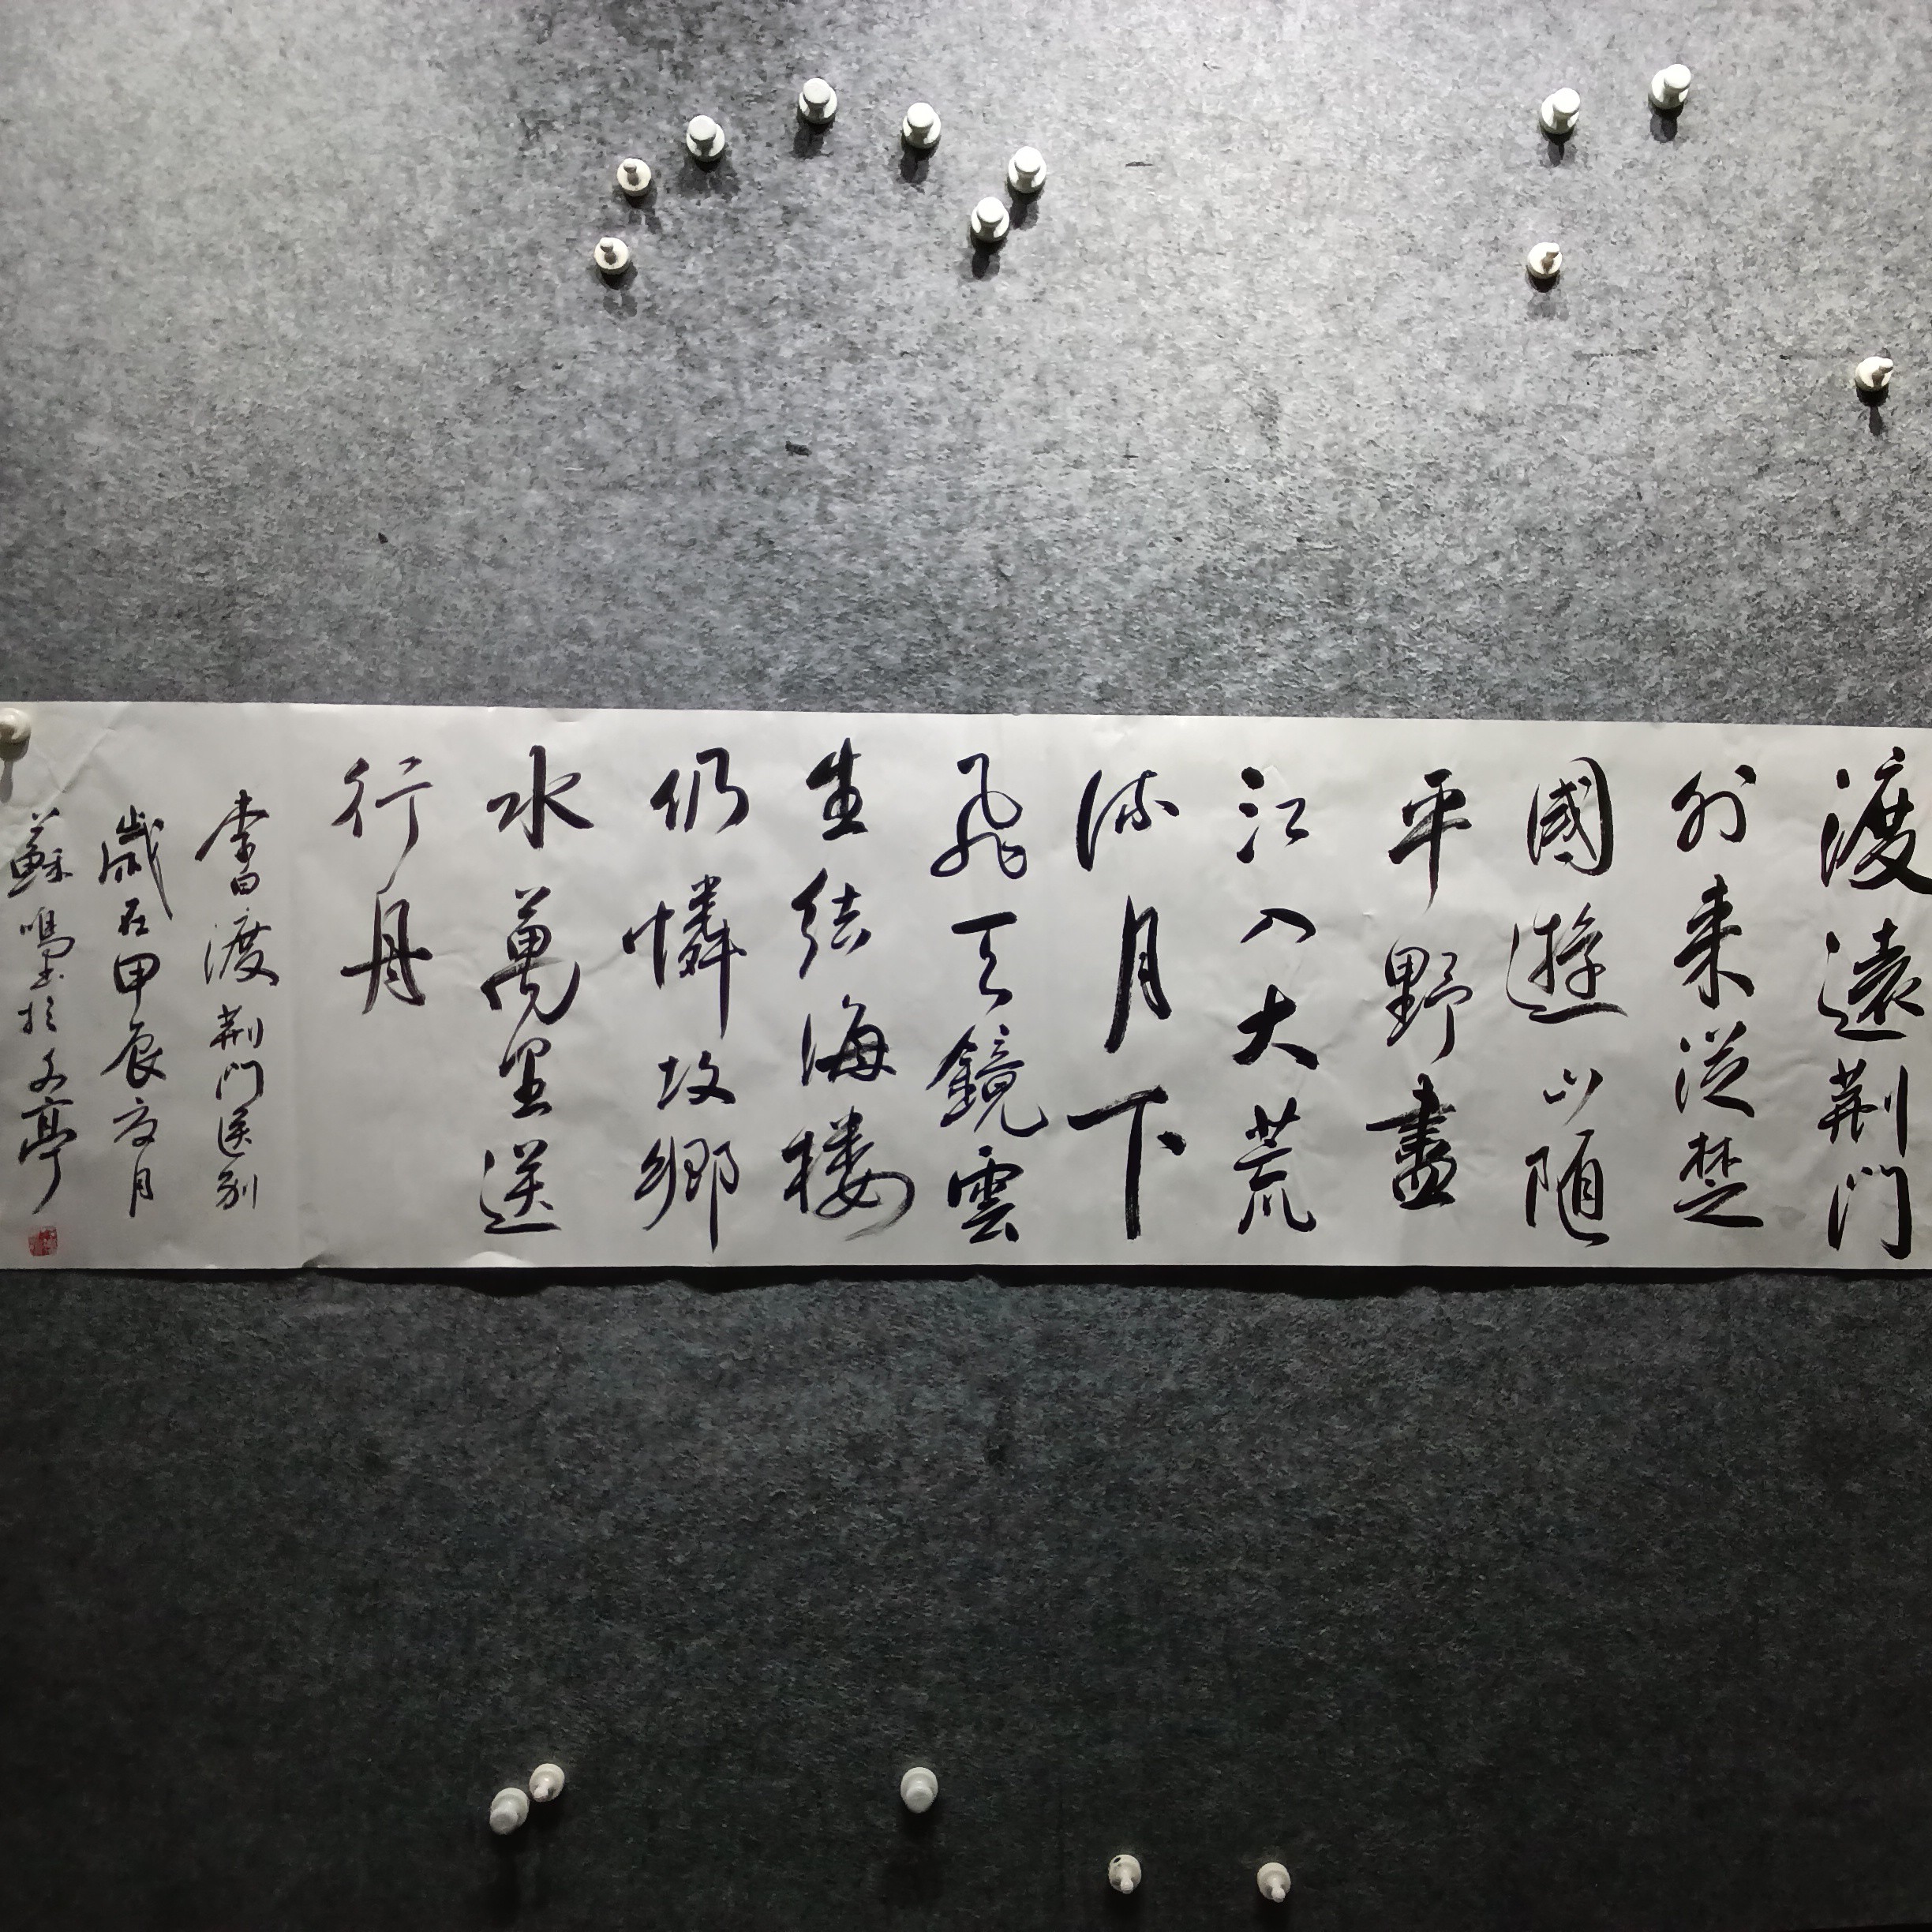 渡遠荆门
外来從楚
國遊山随
平野盡
江入大荒
流月下
飛天鏡雲
生结海楼
仍憐故鄉
水萬里送
行舟
李白渡荆门送别
歲在甲辰夏月
蘇鳴書於文亭